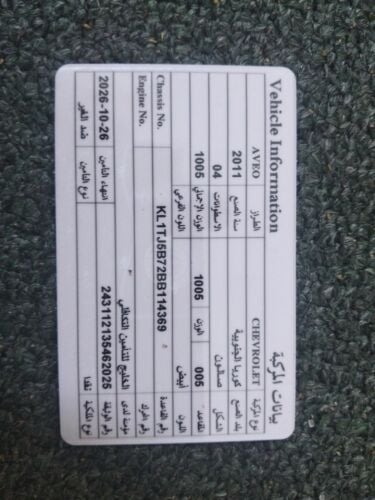 Vehicle Information بيانات المركبة
نوع المركبة CHEVROLET الطراز AVEO
بلد الصنع كوريا الجنوبية سنة الصنع 2011
الشكل صالون الاسطوانات 04
المقاعد 005 الوزن 1005 الوزن الإجمالي 1005
اللون أبيض اللون الفرعي
رقم القاعدة KL1TJ5B72BB114369 Chassis No.
رقم المحرك Engine No.
مؤمنة لدى الخليج للتأمين التكافلي
رقم الوثيقة 243112135462025 انتهاء التأمين 2026-10-26
نوع الملكية نقدا نوع التأمين ضد الغير